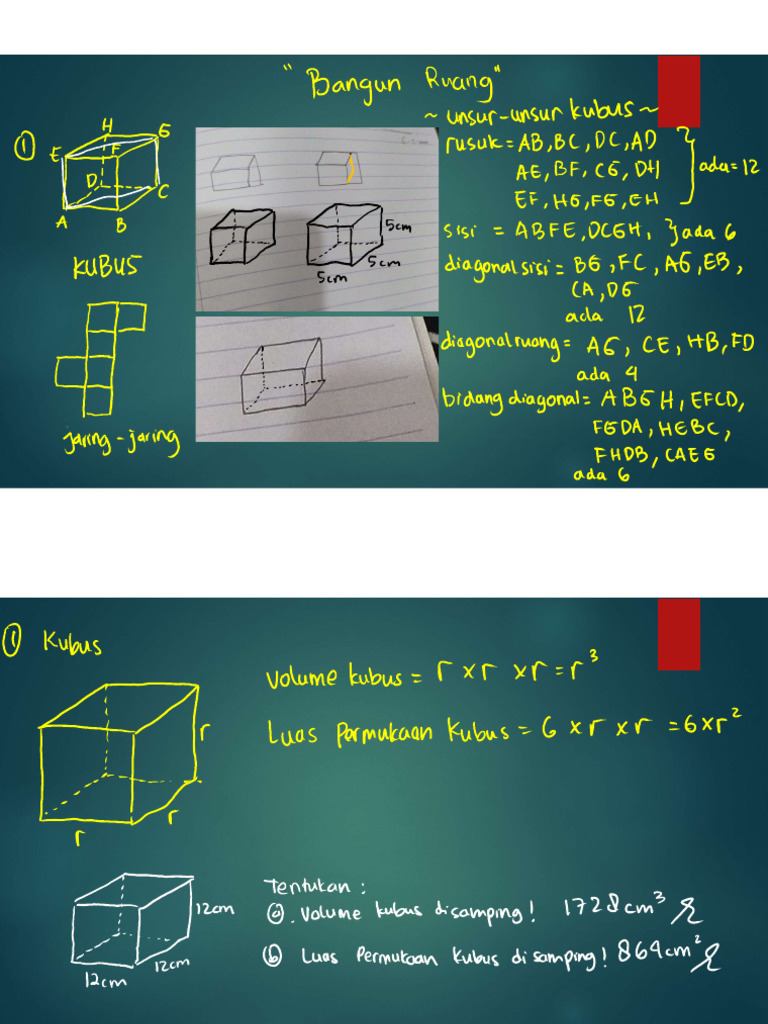 "Bangun Ruang"
~ unsur-unsur kubus ~
①
H G
E F
D C
A B
KUBUS
jaring-jaring
5cm
5cm
5cm
rusuk = AB, BC, DC, AD
AE, BF, CG, DH
EF, HG, FG, EH
ada = 12
sisi = ABFE, DCGH, } ada 6
diagonal sisi = BG, FC, AG, EB,
CA, DG
ada 12
diagonal ruang = AG, CE, HB, FD
ada 4
bidang diagonal = ABGH, EFCD,
FGDA, HEBC,
FHDB, CAEG
ada 6
① Kubus
r
r
r
Volume kubus = r x r x r = r³
Luas Permukaan Kubus = 6 x r x r = 6 x r²
12cm
12cm
12cm
Tentukan :
ⓐ. Volume kubus disamping! 1728 cm³
ⓑ Luas Permukaan Kubus disamping! 864 cm²